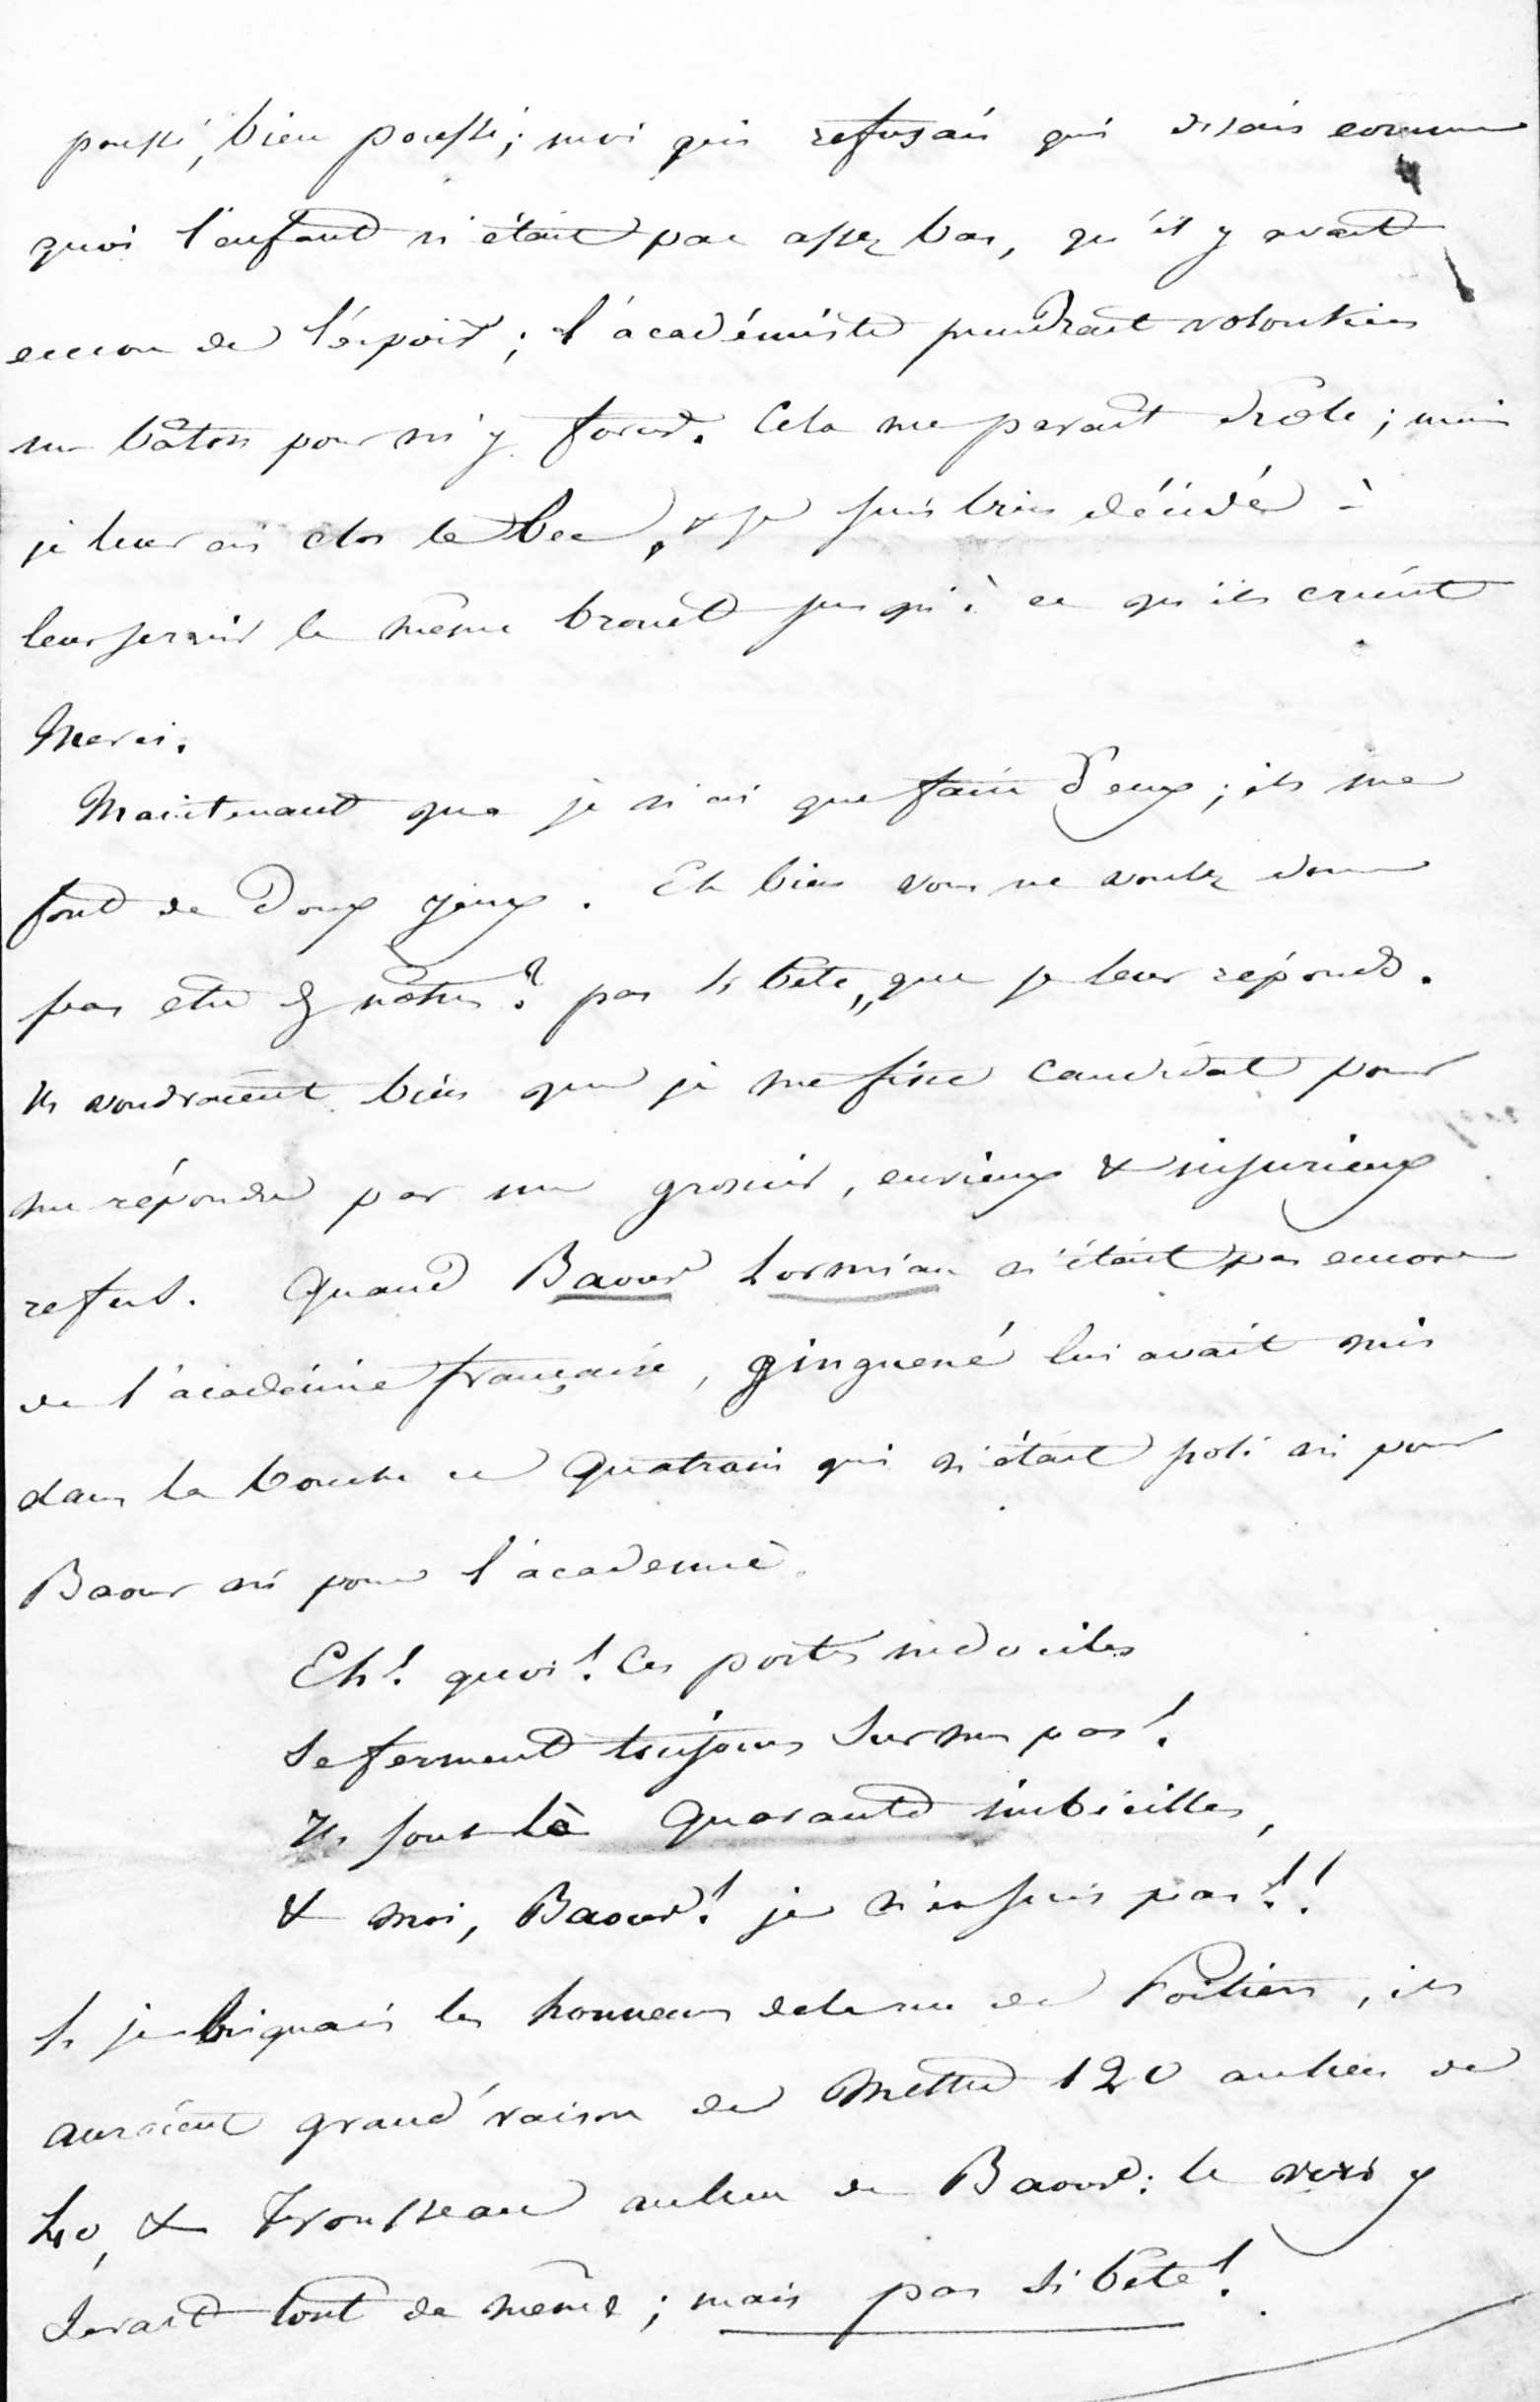 poussé, bien poussé; moi qui refusais qui disais comme
quoi l'enfant n'était pas assez bas, qu'il y avait
encore de l'espoir; l'académiste prendrait volontiers
un bâton pour m'y forcer. Cela me parait drôle; mais
je leur ai clos le bec, & je suis bien décidé à
leur servir le même brouet jusqu'à ce qu'ils crient
Merci.
Maintenant que je n'ai que faire d'eux; ils me
font de doux yeux. Eh bien vous ne voulez donc
pas être des nôtres? pas si bête,, que je leur réponds.
Ils voudraient bien que je me fisse candidat pour
me répondre par un grossier, envieux & injurieux
refus. Quand Baour Lormian n'était pas encore
de l'académie française, ginguené lui avait mis
dans la bouche ce quatrain qui n'était poli ni pour
Baour ni pour l'academie.
Eh! quoi! Ces portes indociles
Se ferment toujours sur mes pas!
Ils sont là quarante imbécilles,
& moi, Baour! je n'en suis pas!!
Si je briguais les honneurs de la rue de Poitiers, ils
auraient grand'raison de mettre 120 au lieu de
40, & Trousseau au lieu de Baour: le vers y
serait tout de même; mais pas si bête!